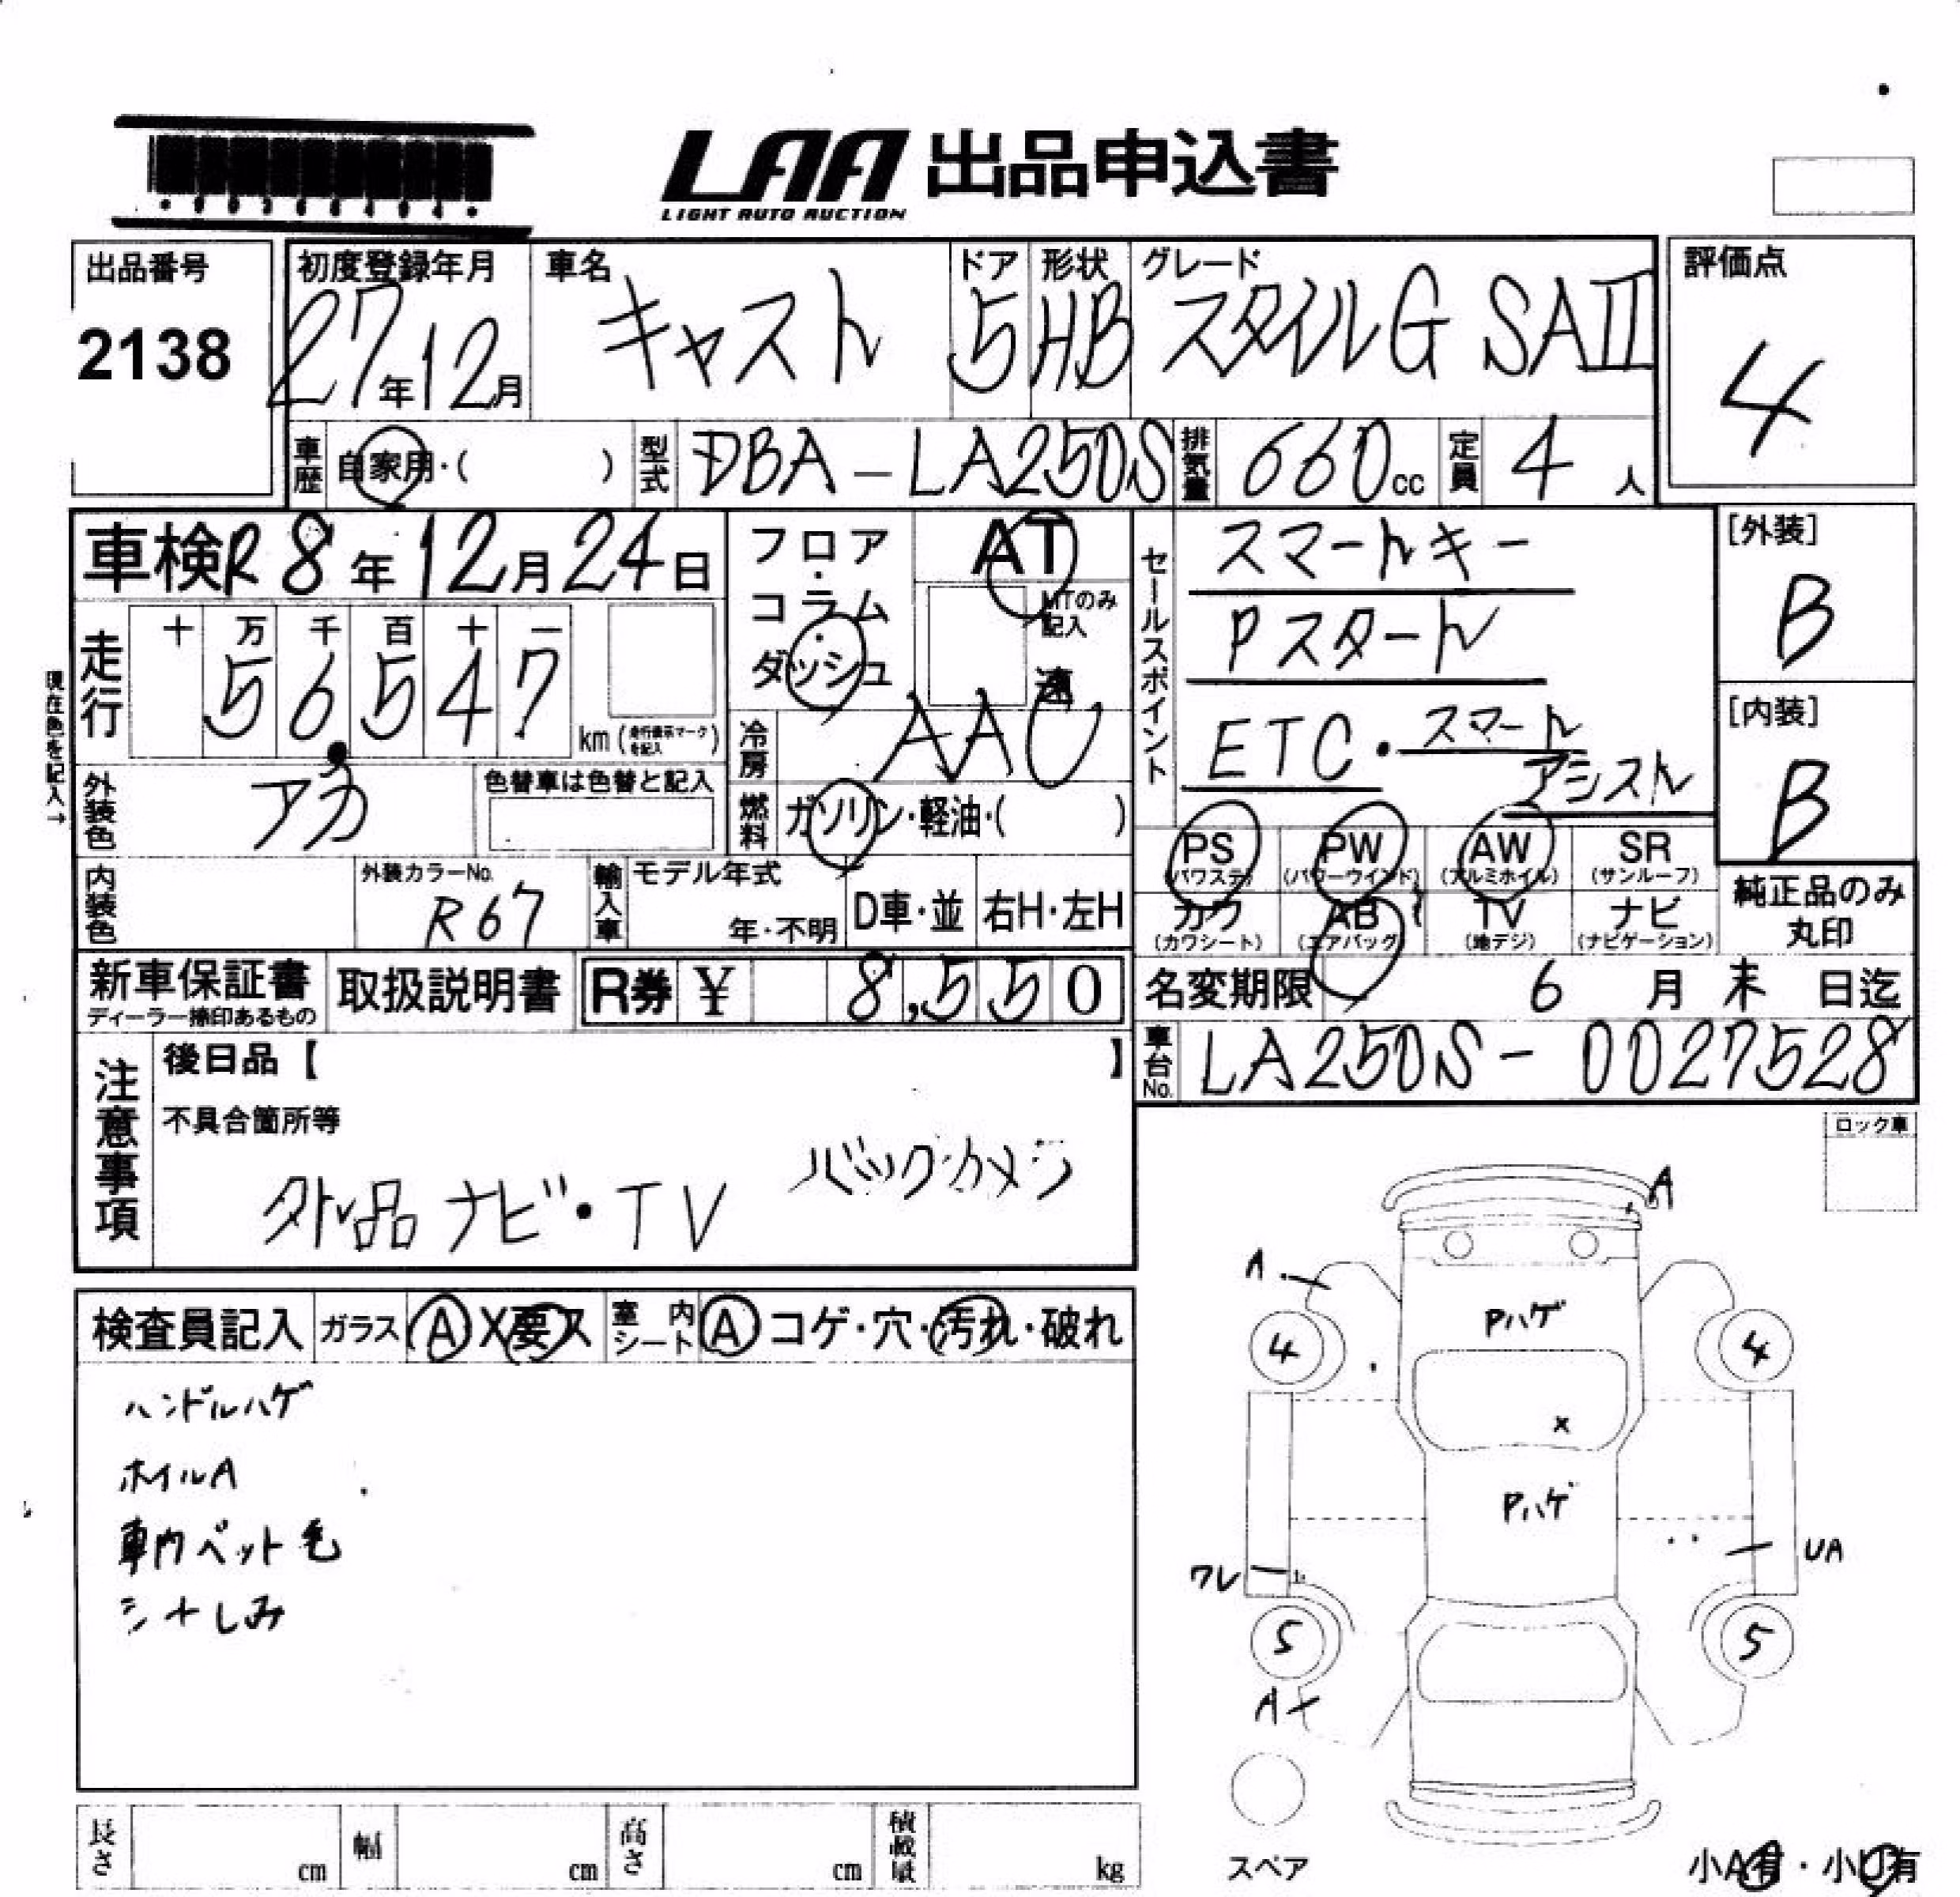 LAA 出品申込書
LIGHT AUTO AUCTION
出品番号
2138
初度登録年月
27年12月
車名
キャスト
ドア
5
形状
HB
グレード
スタイルG SAII
評価点
4
車歴
自家用・( )
型式
DBA-LA250S
排気量
660cc
定員
4人
車検R8年12月24日
走行
十 万 千 百 十 一
56547
km(走行表示マークを記入)
現在色を記入→
外装色
アカ
色替車は色替と記入
内装色
外装カラーNo.
R67
フロア・コラム・ダッシュ
AT
MTのみ記入
速
冷房
AAC
燃料
ガソリン・軽油・( )
輸入車
モデル年式
年・不明
D車・並
右H・左H
セールスポイント
スマートキー
Pスタート
ETC・スマート
アシスト
[外装]
B
[内装]
B
PS (パワステ)
PW (パワーウインド)
AW (アルミホイル)
SR (サンルーフ)
カワ (カワシート)
AB (エアバッグ)
TV (地デジ)
ナビ (ナビゲーション)
純正品のみ丸印
新車保証書
ディーラー捺印あるもの
取扱説明書
R券 ¥ 8,550
名変期限 6月末日迄
車台No.
LA250S-0027528
注意事項
後日品【 】
不具合箇所等
外品ナビ・TV バックカメラ
ロック車
検査員記入
ガラス A X要ス
室内シート A コゲ・穴・汚れ・破れ
ハンドルハゲ
ホイルA
車内ペット毛
シートしみ
A
A
Pハゲ
4
4
x
Pハゲ
ワレ
UA
5
5
A
スペア
長さ cm
幅 cm
高さ cm
積載量 kg
小A有・小U有